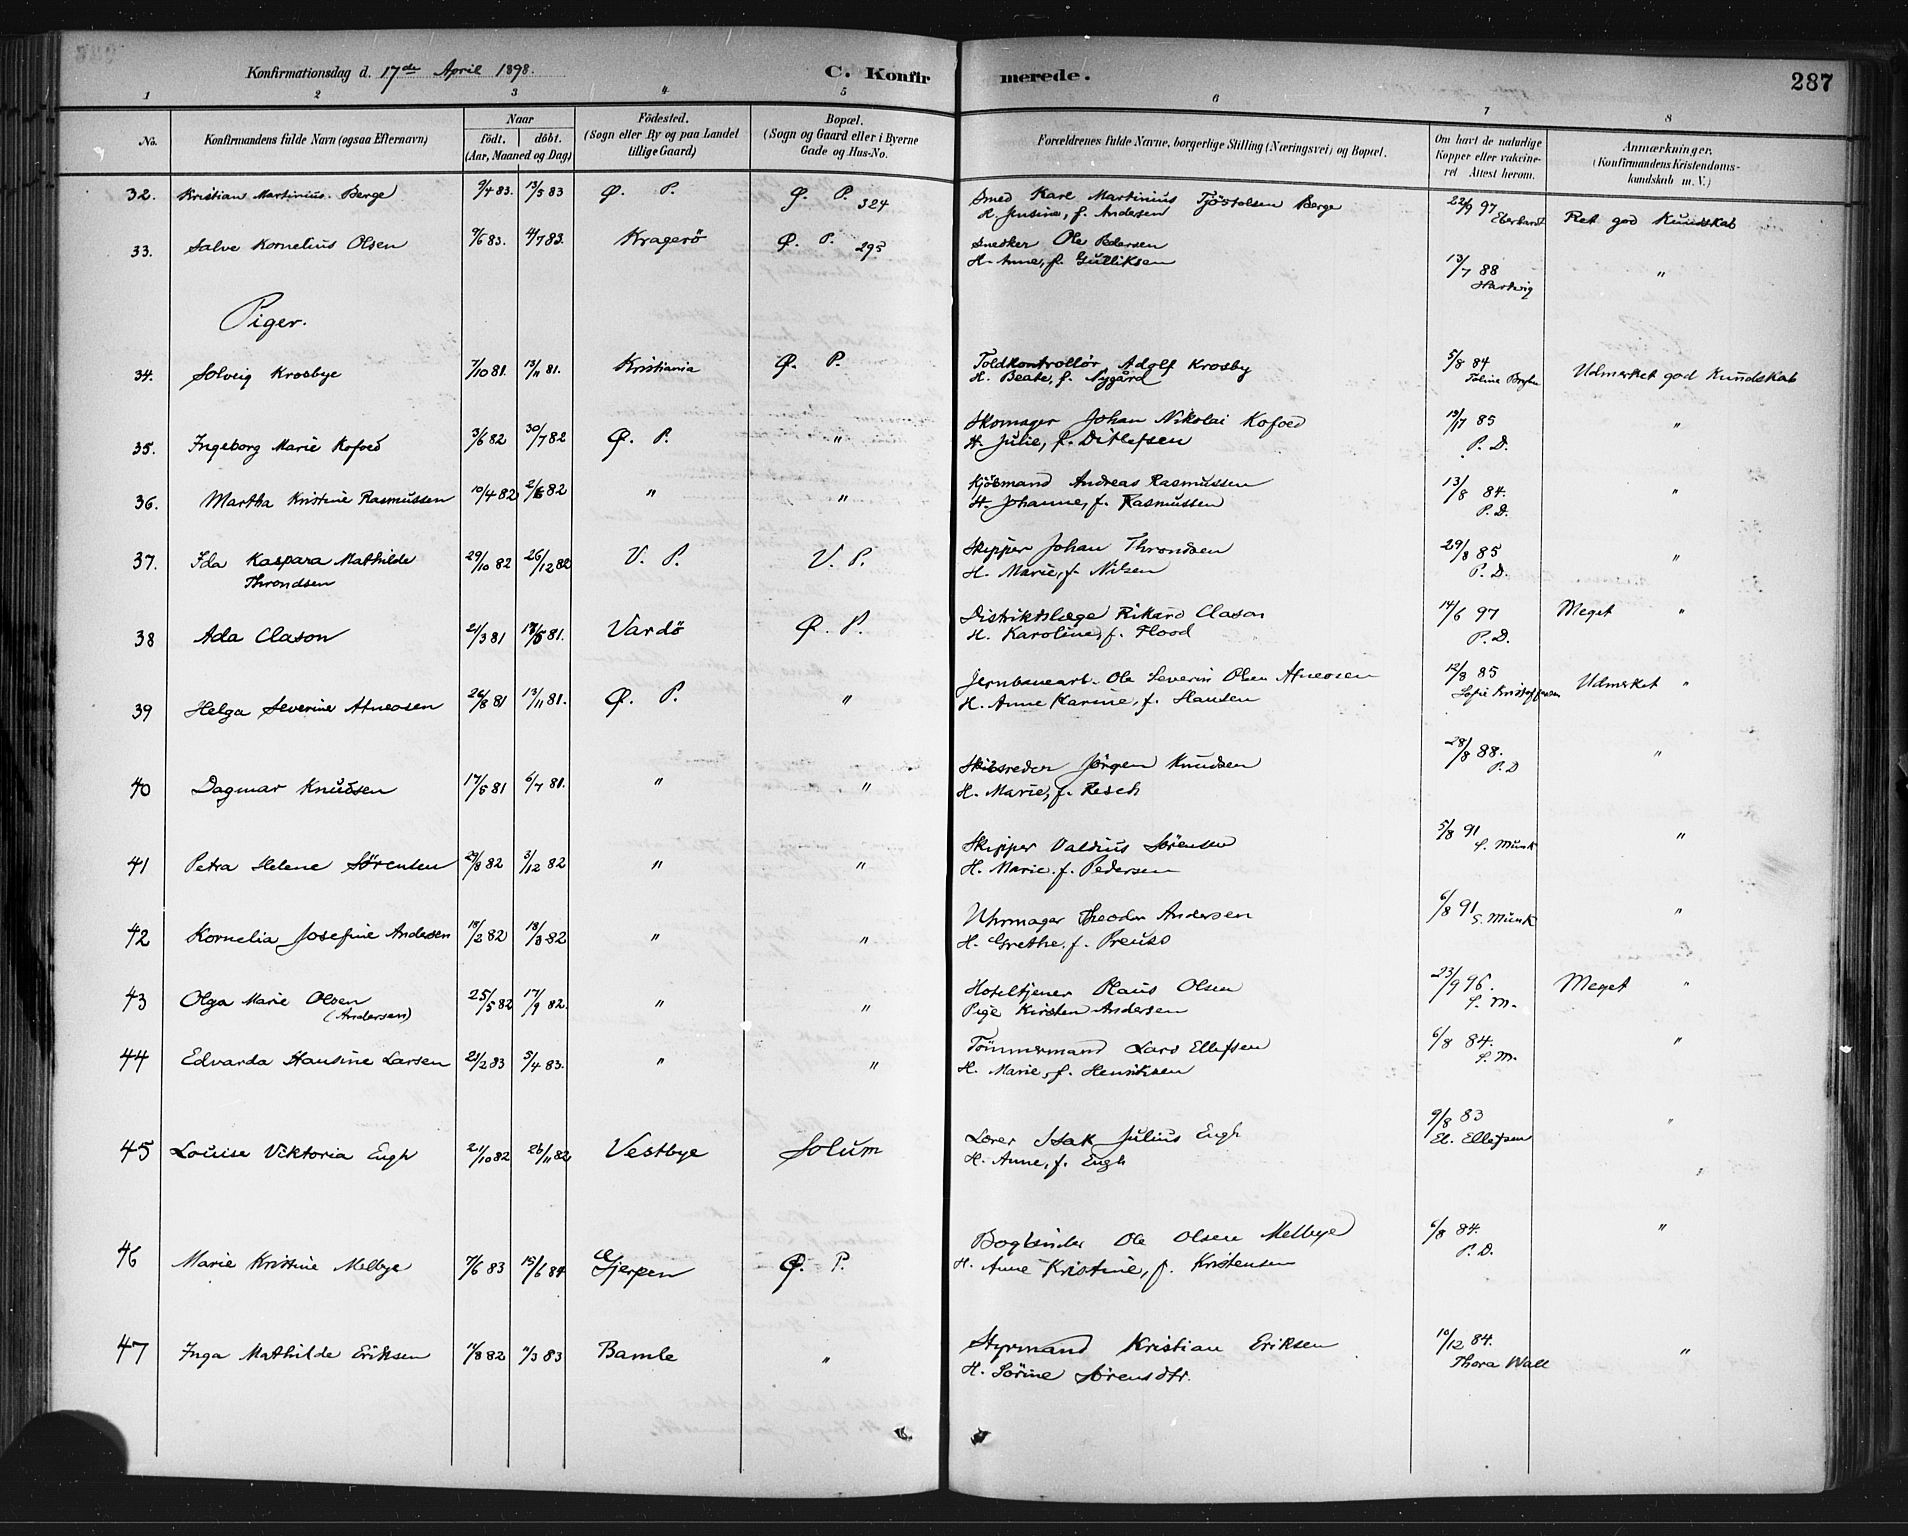 Konfirmationsdag d. 17de April 1898. C. Konfir merede. 287
1 2 3 4 5 6 7 8
No. Konfirmandens fulde Navn (ogsaa Efternavn) Naar født, døbt. (Aar, Maaned og Dag) Fødested. (Sogn eller By og paa Landet tillige Gaard) Bopæl. (Sogn og Gaard eller i Byerne Gade og Hus-No. Forældrenes fulde Navne, borgerlige Stilling (Næringsvei) og Bopæl. Om havt de naturlige Kopper eller vakcineret Attest herom. Anmærkninger, (Konfirmandens Kristendomskundskab m. V.)
32. Kristian Martinius Berge 9/4 83. 13/5 83 Ø. P. Ø. P. 324 Smed Karl Martinius Tjöstolsen Berge 22/9 97 Ret god Kundskab
H. Jensine, f. Andersen Eberhardt
33. Salve Kornelius Olsen 9/6 83. 4/7 83. Kragerö Ø. P. 295 Snedker Ole Pedersen
H. Anne, f. Gulliksen 13/7 88 "
Hartwig
Piger.
34. Solveig Krosbye 7/10 81. 13/11 81. Kristiania Ø. P. Toldkontrollör Adolf Krosby 5/8 84 Udmerket god Kundskab
H. Beate, f. Nygård
35. Ingeborg Marie Kofoed 3/6 82 30/7 82 Ø. P. " Skomager Johan Nikolai Kofoed 85 "
H. Julie, f. Ditlefsen P. D.
36. Martha Kristine Rasmussen 10/4 82 82 " " Andreas Rasmussen 13/8 84. "
H. Johanne, f. Rasmussen P. D.
37. Ida Kaspara Mathilde 29/10 82 26/12 82 V. P. V. P. Skipper Johan Throndsen 29/8 85 "
Throndsen H. Marie, f. Nilsen P. D.
38 Ada Clason 21/3 81 81. Vardö Ø. P. Distriktslæge Rikard Clason 14/6 97 Meget "
H. Karoline, f. Flood P. D.
39 Helga Severine Atneosen 26/8 81 13/11 81. Ø. P. " Jernbanearb. Ole Severin Olsen Atneosen 12/8 85 Udmerket "
H. Anne Karine, f. Hansen
40 Dagmar Knudsen 17/5 81 6/7 81. " " Skibsreder Jørgen Knudsen 28/8 88. "
H. Marie, f. Resch P. D
41 Petra Helene Sørensen 29/8 82 3/12 82 " " Skipper Valdius Sørensen 5/8 91 "
H. Marie. f. Pedersen S. Munk
42 Kornelia Josefine Andersen 82 82 " " Uhrmager Theodor Andersen 6/8 91 "
H. Grethe. f. Preuss S. Munk
43 Olga Marie Olsen 25/5 82 17/9 82. " " Hoteltjener Klaus Olsen 23/9 96. Meget "
(Andersen) Pige Kirsten Andersen S. M.
44 Edvarda Hansine Larsen 21/2 83 5/4 83. " " Tömmermand Lars Ellefsen 6/8 84. "
H. Marie, f. Henriksen S. M.
45 Louise Viktoria Engh 21/10 82 26/11 82 Vestbye Solum Lærer Isak Julius Engh 9/8 83 "
H. Anne, f. Engh El. Ellefsen
46 Marie Kristine Melbye 7/6 83 15/6 84 Gjerpen Ø. P. Bogbinder Ole Olsen Melbye 6/8 84. "
H. Anne Kristine, f. Kristensen P. D.
47 Inga Mathilde Eriksen 82 83 Bamle " Styrmand Kristian Eriksen 10/12 84. "
H. Sörine Sörensdtr. Thora Wall